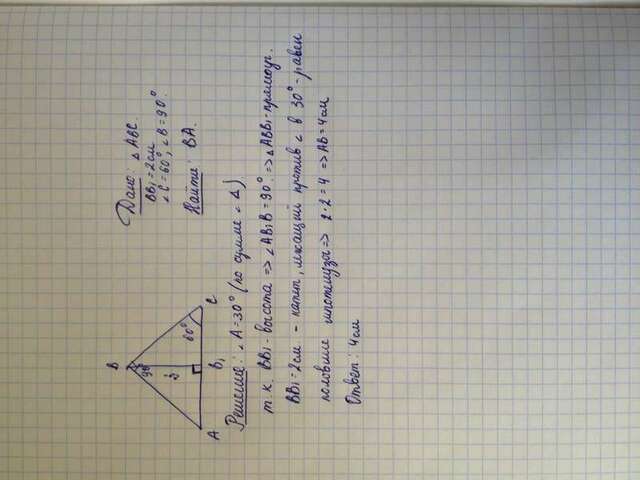 B
90°
2
60°
A
B₁
C
Дано: △ABC.
BB₁=2см
∠C=60°, ∠B=90°.
Найти: BA.
Решение: ∠A=30° (по сумме ∠ △)
т.к. BB₁-высота => ∠AB₁B=90° => △ABB₁-прямоуг.
BB₁=2см - катет, лежащий против ∠ в 30°-равен
половине гипотенузы => 2·2=4 => AB=4см
Ответ: 4см